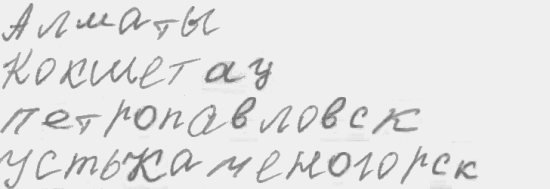 Алматы
Кокшетау
петропавловск
устькаменогорск